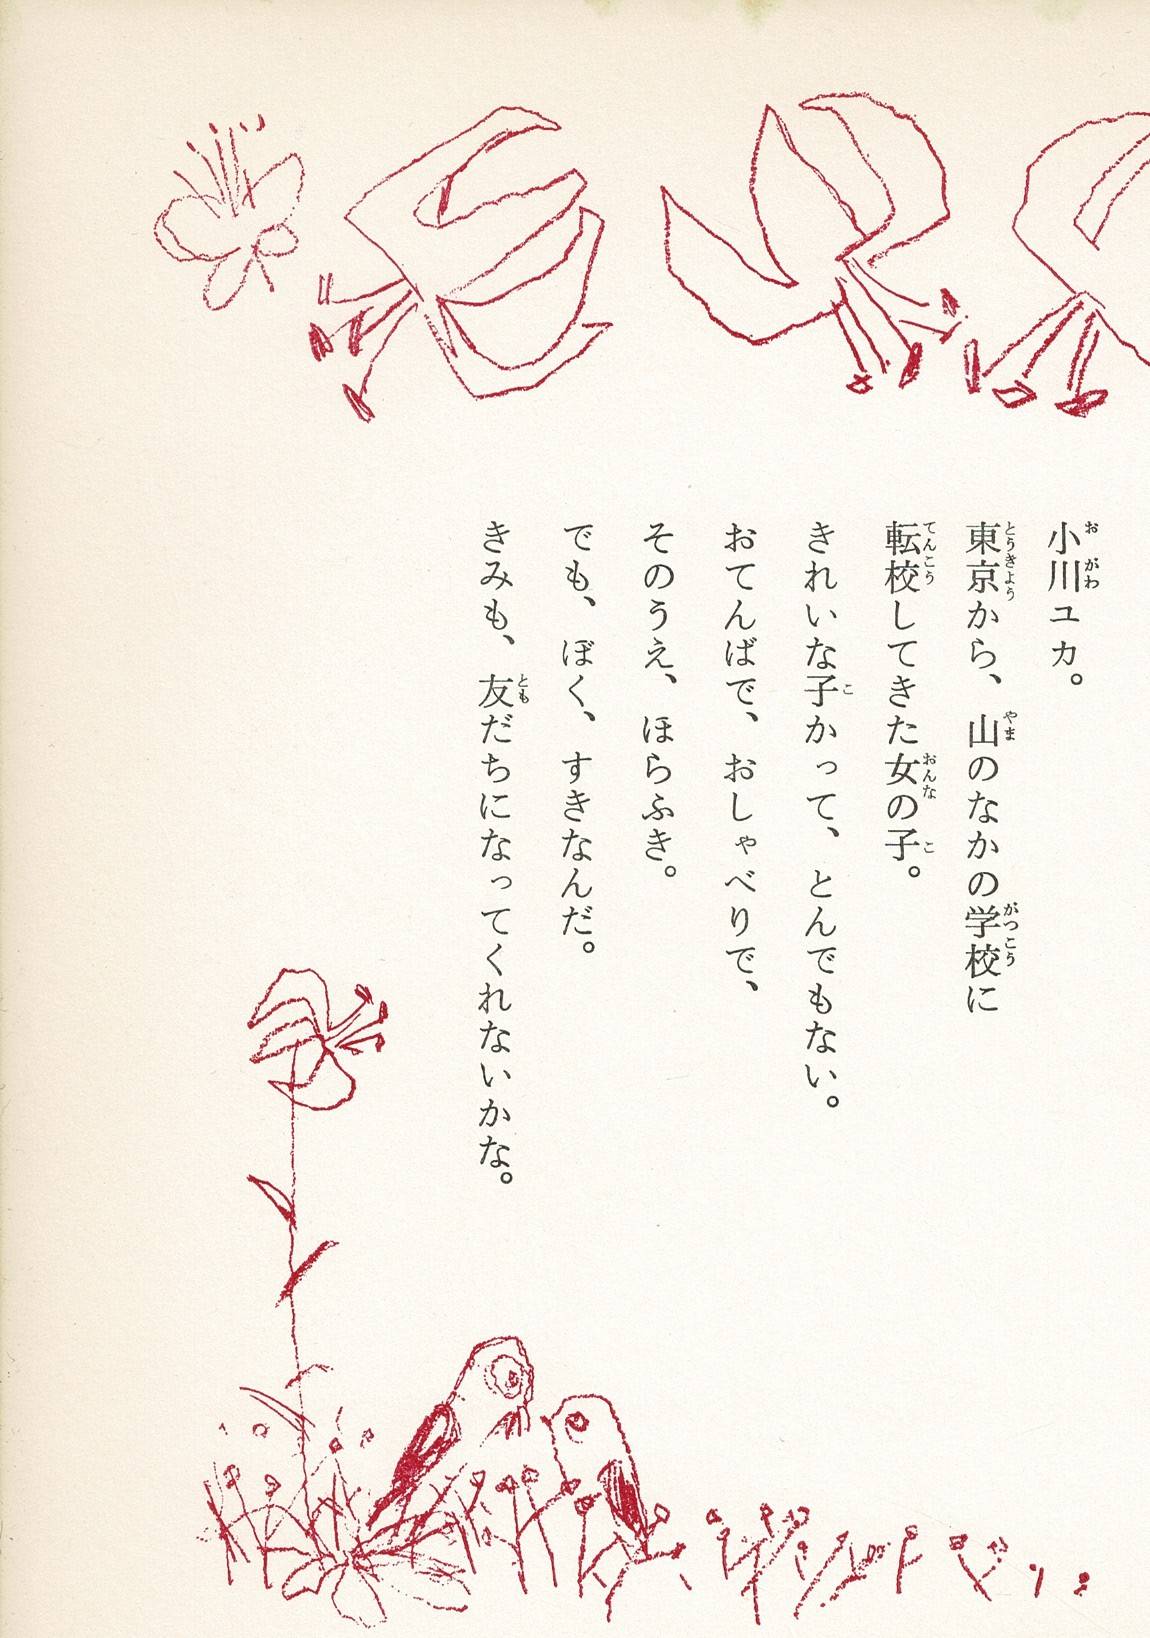 小川ユカ。
東京から、山のなかの学校に
転校してきた女の子。
きれいな子かって、とんでもない。
おてんばで、おしゃべりで、
そのうえ、ほらふき。
でも、ぼく、すきなんだ。
きみも、友だちになってくれないかな。